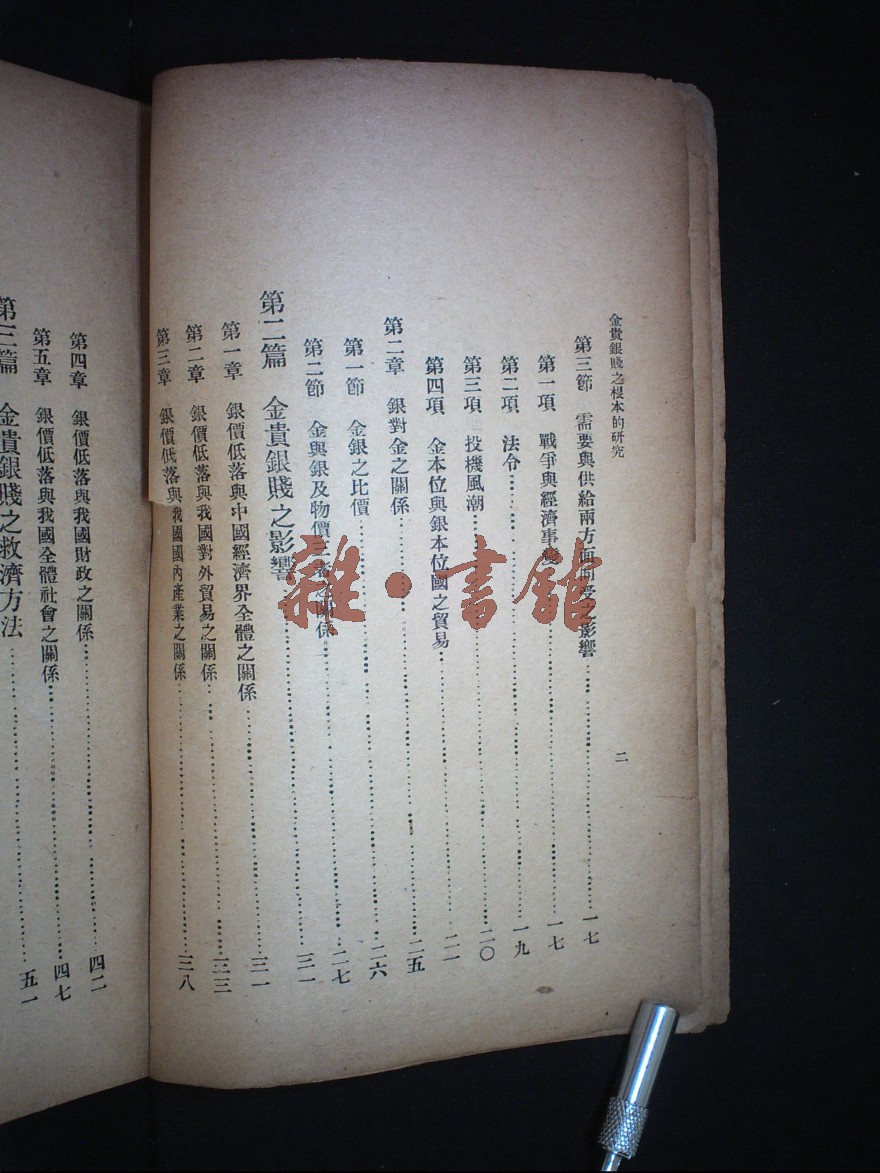 金貴銀賤之根本的研究
二
第三節 需要與供給兩方面同受之影響 一七
第一項 戰爭與經濟事變 一七
第二項 法令 一九
第三項 投機風潮 二〇
第四項 金本位與銀本位國之貿易 二二
第二章 銀對金之關係 二五
第一節 金銀之比價 二六
第二節 金與銀及物價三者之關係 二七
第二篇 金貴銀賤之影響 三一
第一章 銀價低落與中國經濟界全體之關係 三一
第二章 銀價低落與我國對外貿易之關係 三三
第三章 銀價低落與我國國內產業之關係 三八
第四章 銀價低落與我國財政之關係 四二
第五章 銀價低落與我國全體社會之關係 四七
第三篇 金貴銀賤之救濟方法 五一
雜·書館